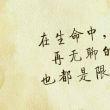 在生命中，
再无聊的
也都是限